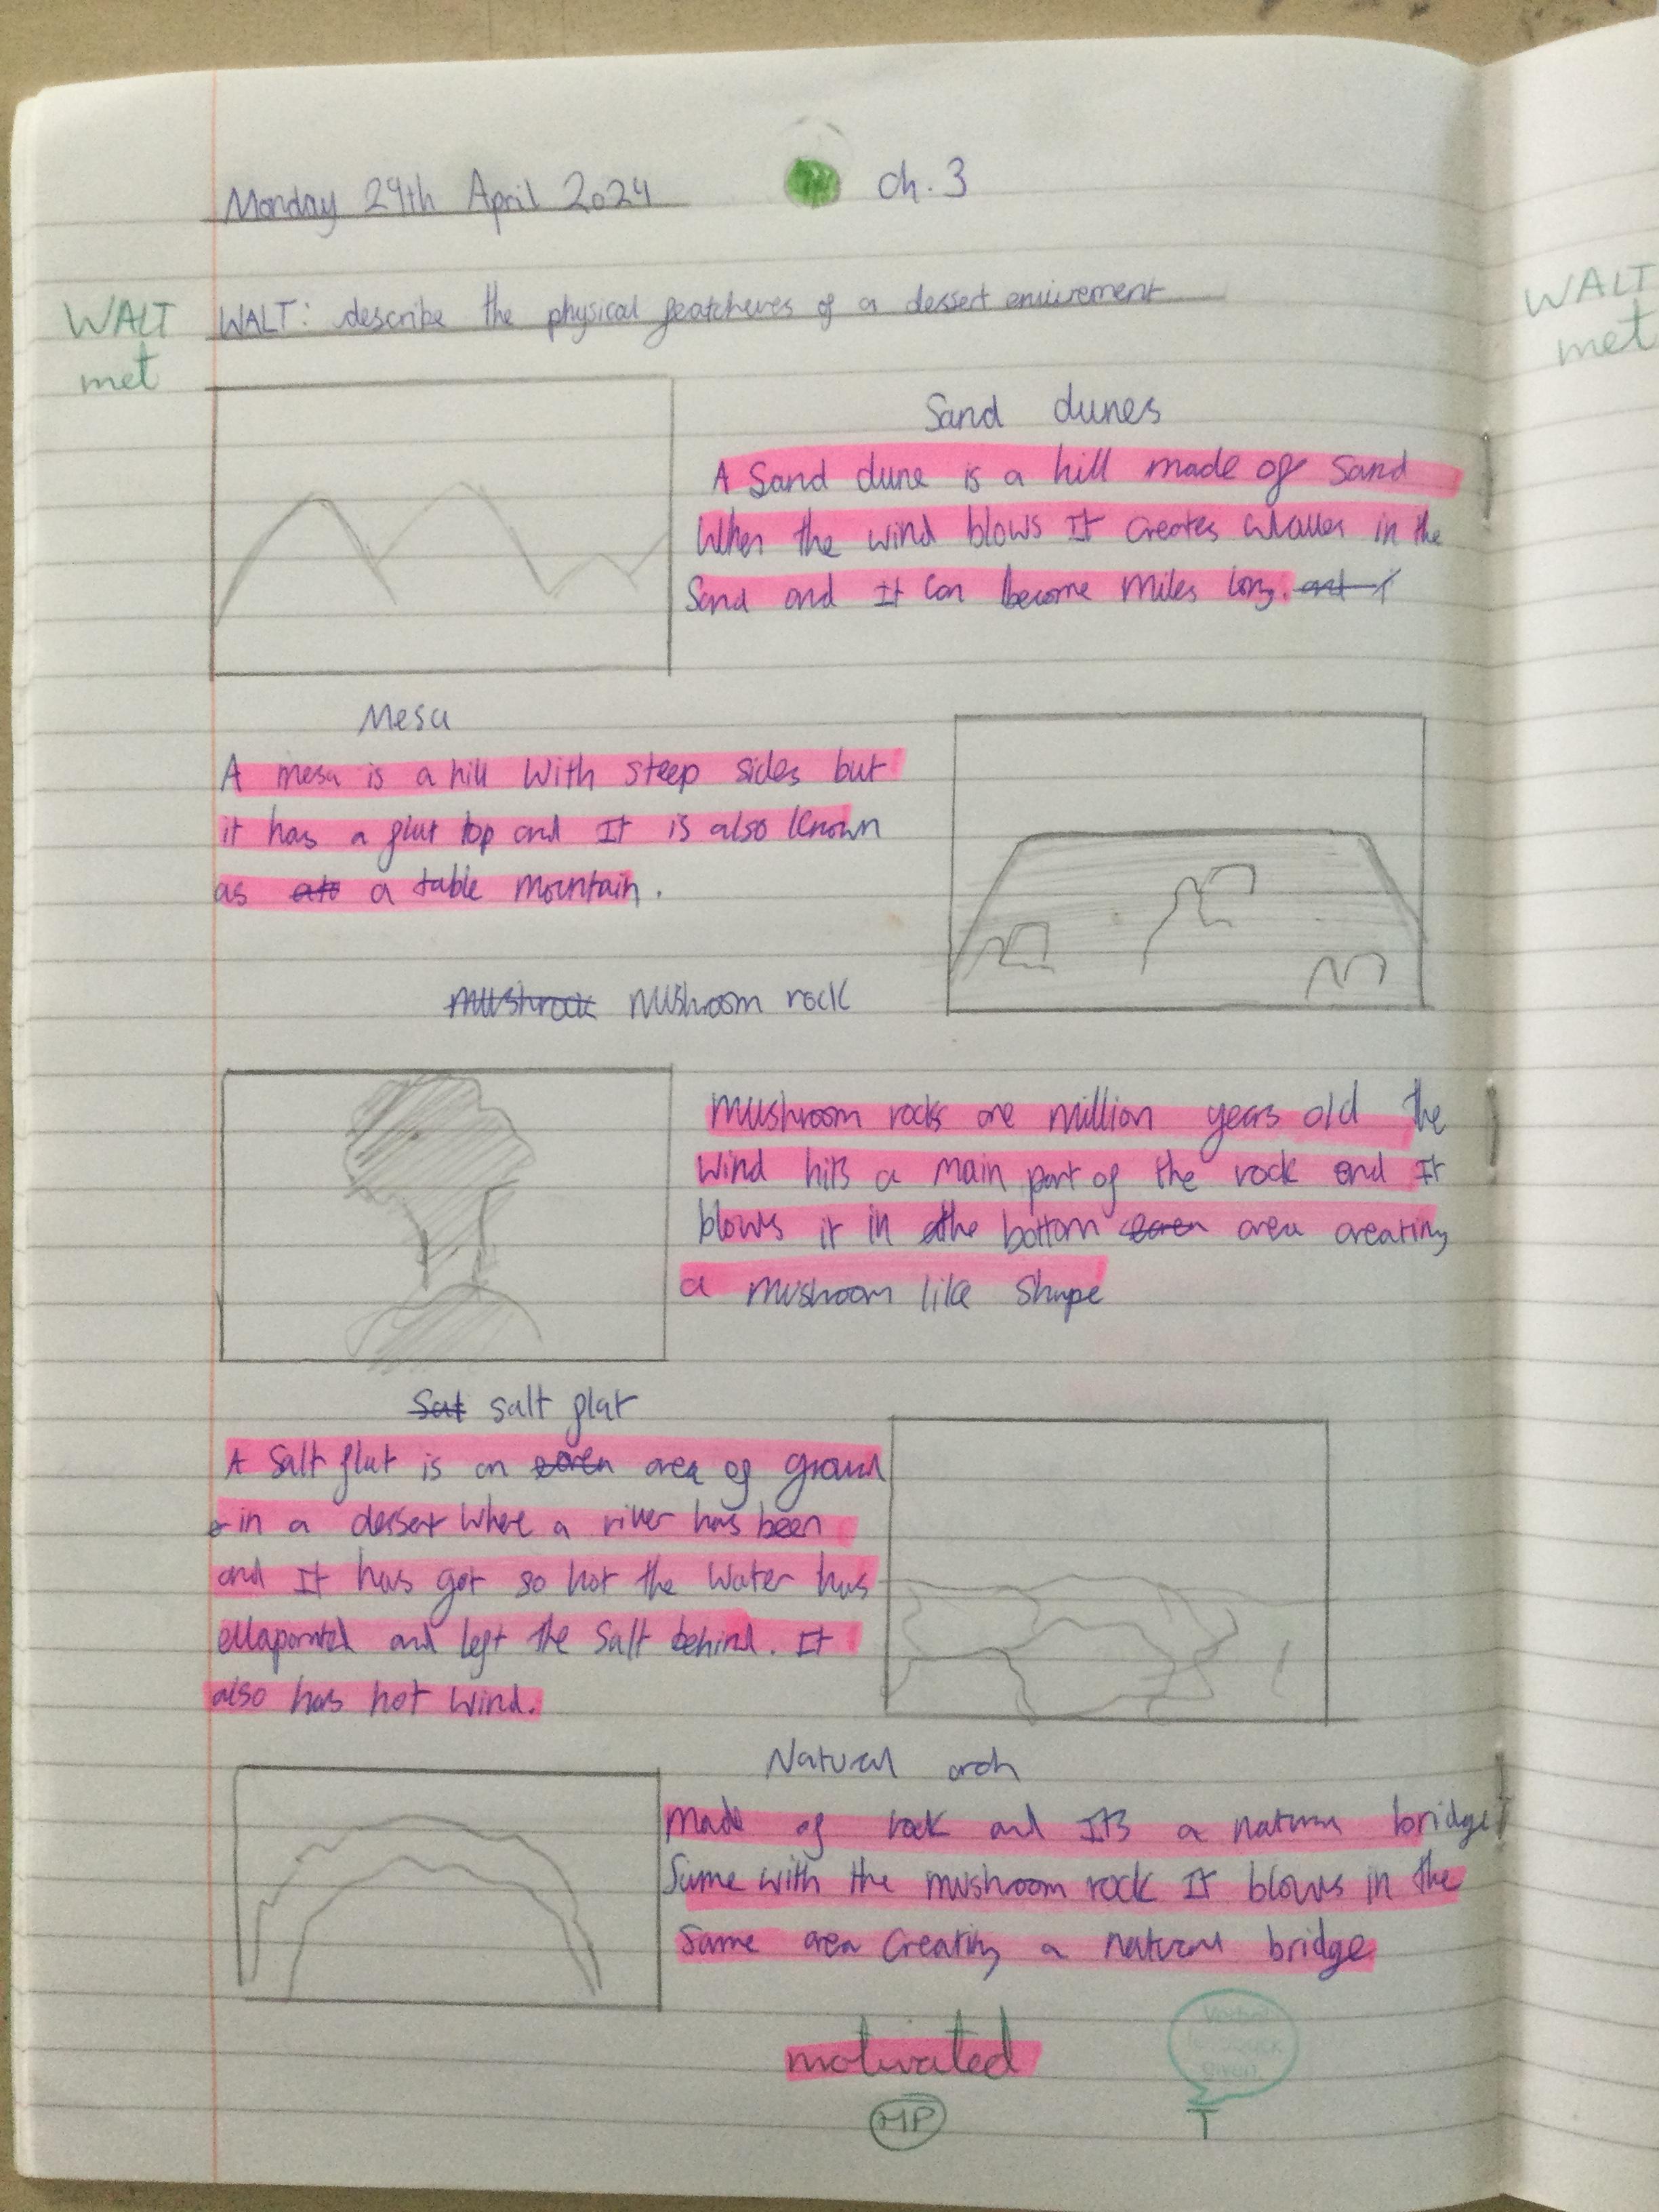 Monday 29th April 2024 ch. 3
WALT: describe the physical featcheures of a dessert enviurement
WALT
met
Sand dunes
A Sand dune is a hill made of Sand
When the wind blows It creates in the
Sand and It can become Miles long.
Mesa
A mesa is a hill With steep sides but
it has a flat top and It is also known
as a table mountain.
mushroom rock
Mushroom rocks are million years old the
wind hits a main part of the rock and It
blows it in the bottom area creating
a mushroom like shape
Sat salt flat
A Salt flat is an area of ground
in a dessert where a river has been
and It has got so hot the water has
evaporated and left the Salt behind. It
also has hot wind.
Natural arch
Made of rock and It's a natural bridge
Same with the mushroom rock It blows in the
same area Creating a natural bridge
motivated
Verbal
feedback
given
MP
T
WALT
met